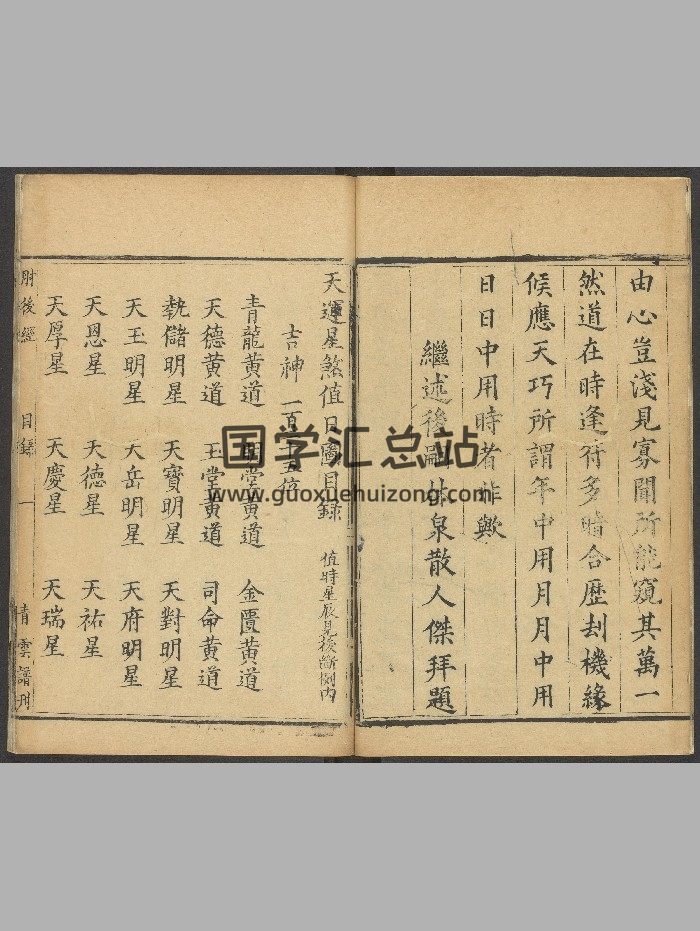 由心豈淺見寡聞所能窺其萬一
然道在時逢符多暗合歷刦機緣
候應天巧所謂年中用月月中用
日日中用時者非歟
繼述後嗣 泉散人傑拜題
天運星煞值日圖目錄 值時星辰見後斷例內
吉神 一百 十五位
青龍黃道 明堂黃道 金匱黃道
天德黃道 玉堂黃道 司命黃道
執儲明星 天寶明星 天對明星
天玉明星 天岳明星 天府明星
天恩星 天德星 天祐星
天厚星 天慶星 天瑞星
肘後經 目錄 一 青雲譜刊
国学汇总站
www.guoxuehuizong.com